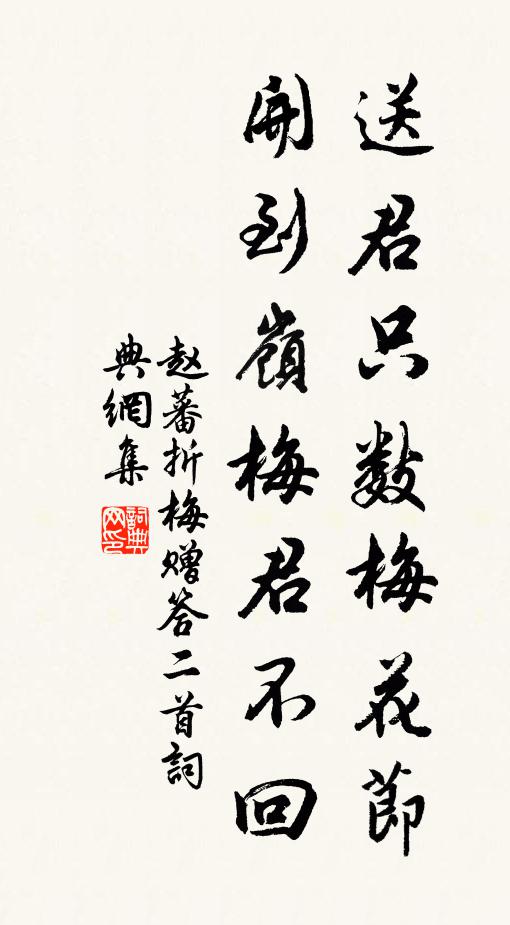 送君只数梅花節
開到嶺梅君不回
赵蕃折梅赠答二首詞
典網集
詞典網印